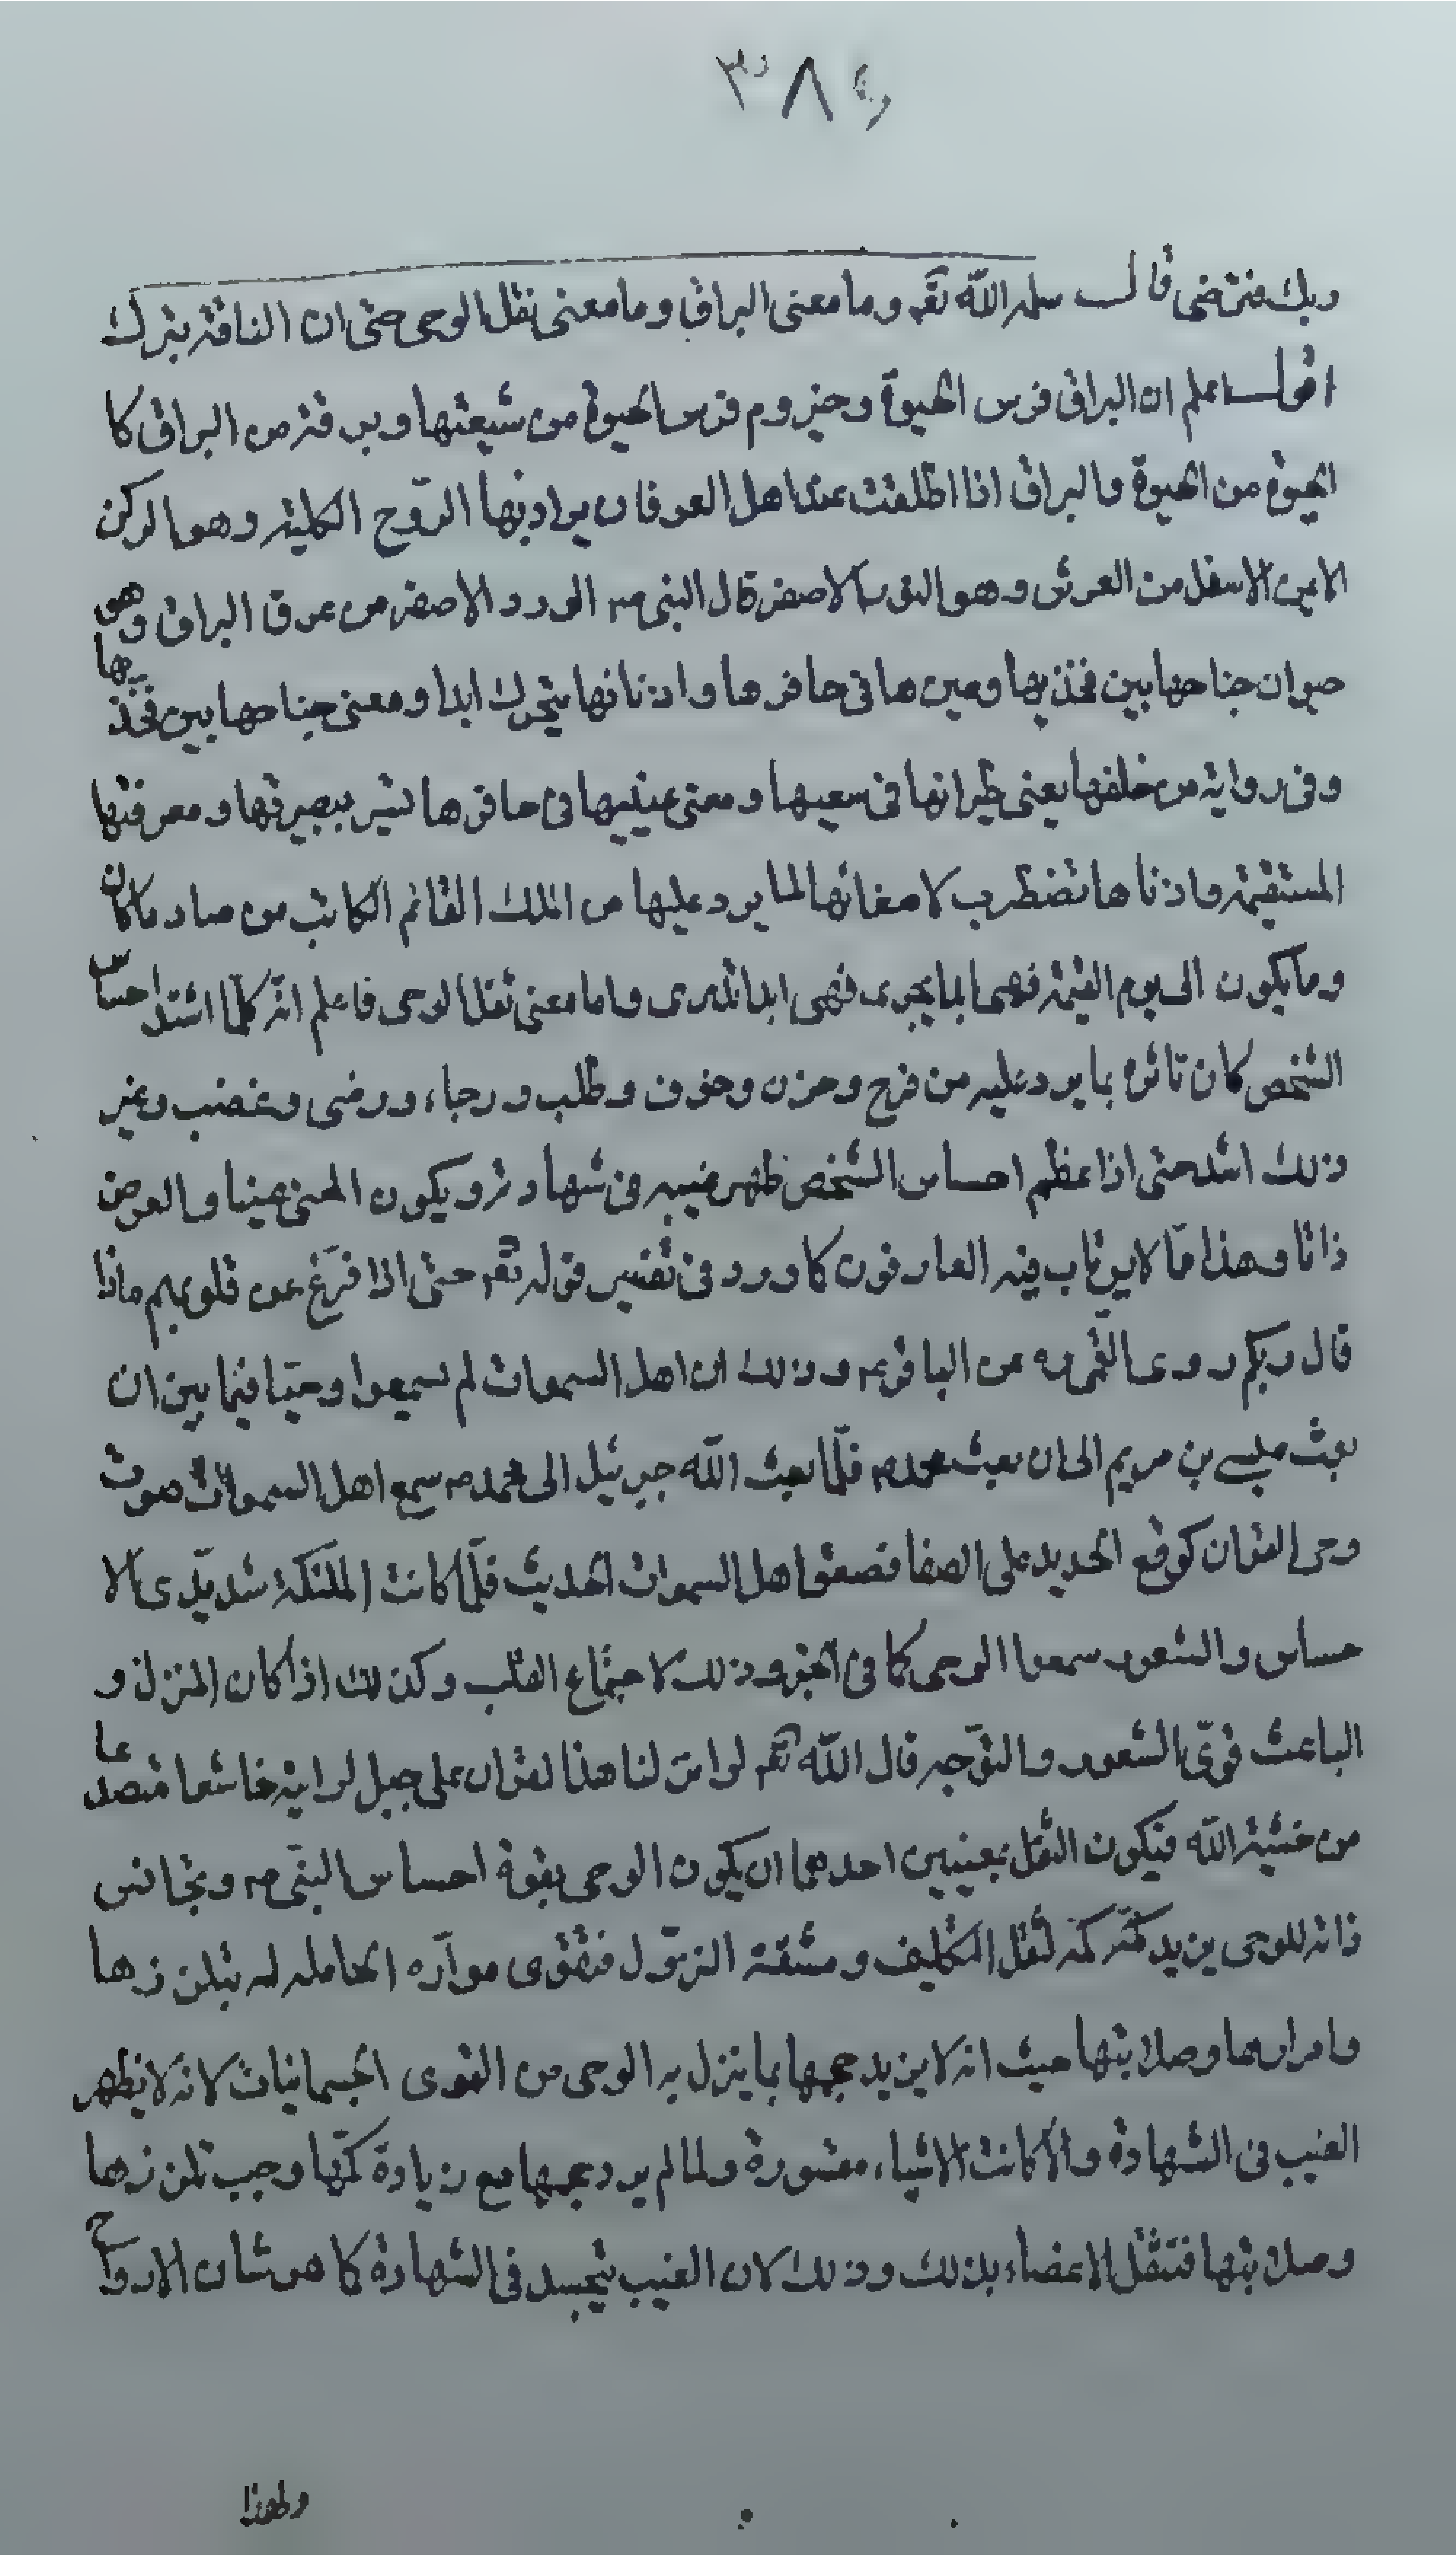 ٣٨٤
ربك فترضى قال سلمه الله تعه وما معنى البراق وما معنى ثقل الوحى حتى ان الناقة تبرك
اقول اعلم ان البراق فرس الحيوة وحيزوم فرس الحيوة من شيعتها وبرقة من البراق كا
لحيوة من الحيوة والبراق اذا اطلقت عند اهل العرفان يراد بها الروح الكلية وهو الركن
الايمن الاسفل من العرش وهو النور الاصفر قال النبى ص الورد الاصفر من عرق البراق وهى
حيوان جناحها بين فخذيها وعينها فى حافرها واذنانها يتحرك ابدا ومعنى جناحها بين فخذيها
وفى رواية من خلفها يعنى طيرانها فى سعيها ومعنى عينيها فى حافرها تسير ببصيرتها ومعرفتها
المستقيمة واذناها تضطرب لاصغائها لما يرد عليها من الملك القائم الكاتب من صاد ما كان
وما يكون الى يوم القيمة فهى ابدا تدرى واما معنى ثقل الوحى فاعلم انه كلما اشتد احساس
الشخص كان تاثره بما يرد عليه من فرح وحزن وخوف وطلب ورجاء ورضى وغضب وغير
ذلك اشد حتى اذا عظم احساس الشخص ظهر غيبه فى شهادته ويكون المعنى عينا والعرض
ذاتا وهذا مما لا يرتاب فيه العارفون كما ورد فى تفسير قوله تعه حتى اذا فزع عن قلوبهم ماذا
قال ربكم روى القمى ره عن الباقر ع وذلك ان اهل السموات لم يسمعوا وحيا فيما بين ان
بعث عيسى بن مريم الى ان بعث محمد ص فلما بعث الله جبرئيل الى محمد ص سمع اهل السموات صوت
وحى القران كوقع الحديد على الصفا فصعق اهل السموات الحديث فلما كانت الملئكة شديدى الا
حساس والشعور سمعوا الوحى كما فى الخبر وذلك لاجتماع القلب وكذلك اذا كان المنزل و
الباعث قوى الشعور والتوجه قال الله تعه لو انزلنا هذا القران على جبل لرايته خاشعا متصدعا
من خشية الله فيكون الثقل بمعنيين احدهما ان يكون الوحى بقوة احساس النبى ص وتجانس
ذاته للوحى يزيد كمه لثقل التكليف ومشقة النزول فتقوى مواده الحاملة له بتلززها
وامرارها وصلابتها حيث انه لا يزيد حجمها بما ينزل به الوحى من القوى الجسمانيات لانه لا يظهر
الغيب فى الشهادة والا كانت الاشياء مقسورة ولما لم يزد حجمها مع زيادة كمها وجب تلززها
وصلابتها فتثقل الاعضاء بذلك وذلك لان الغيب يتجسد فى الشهادة كما هو شان الارواح
ولهذا